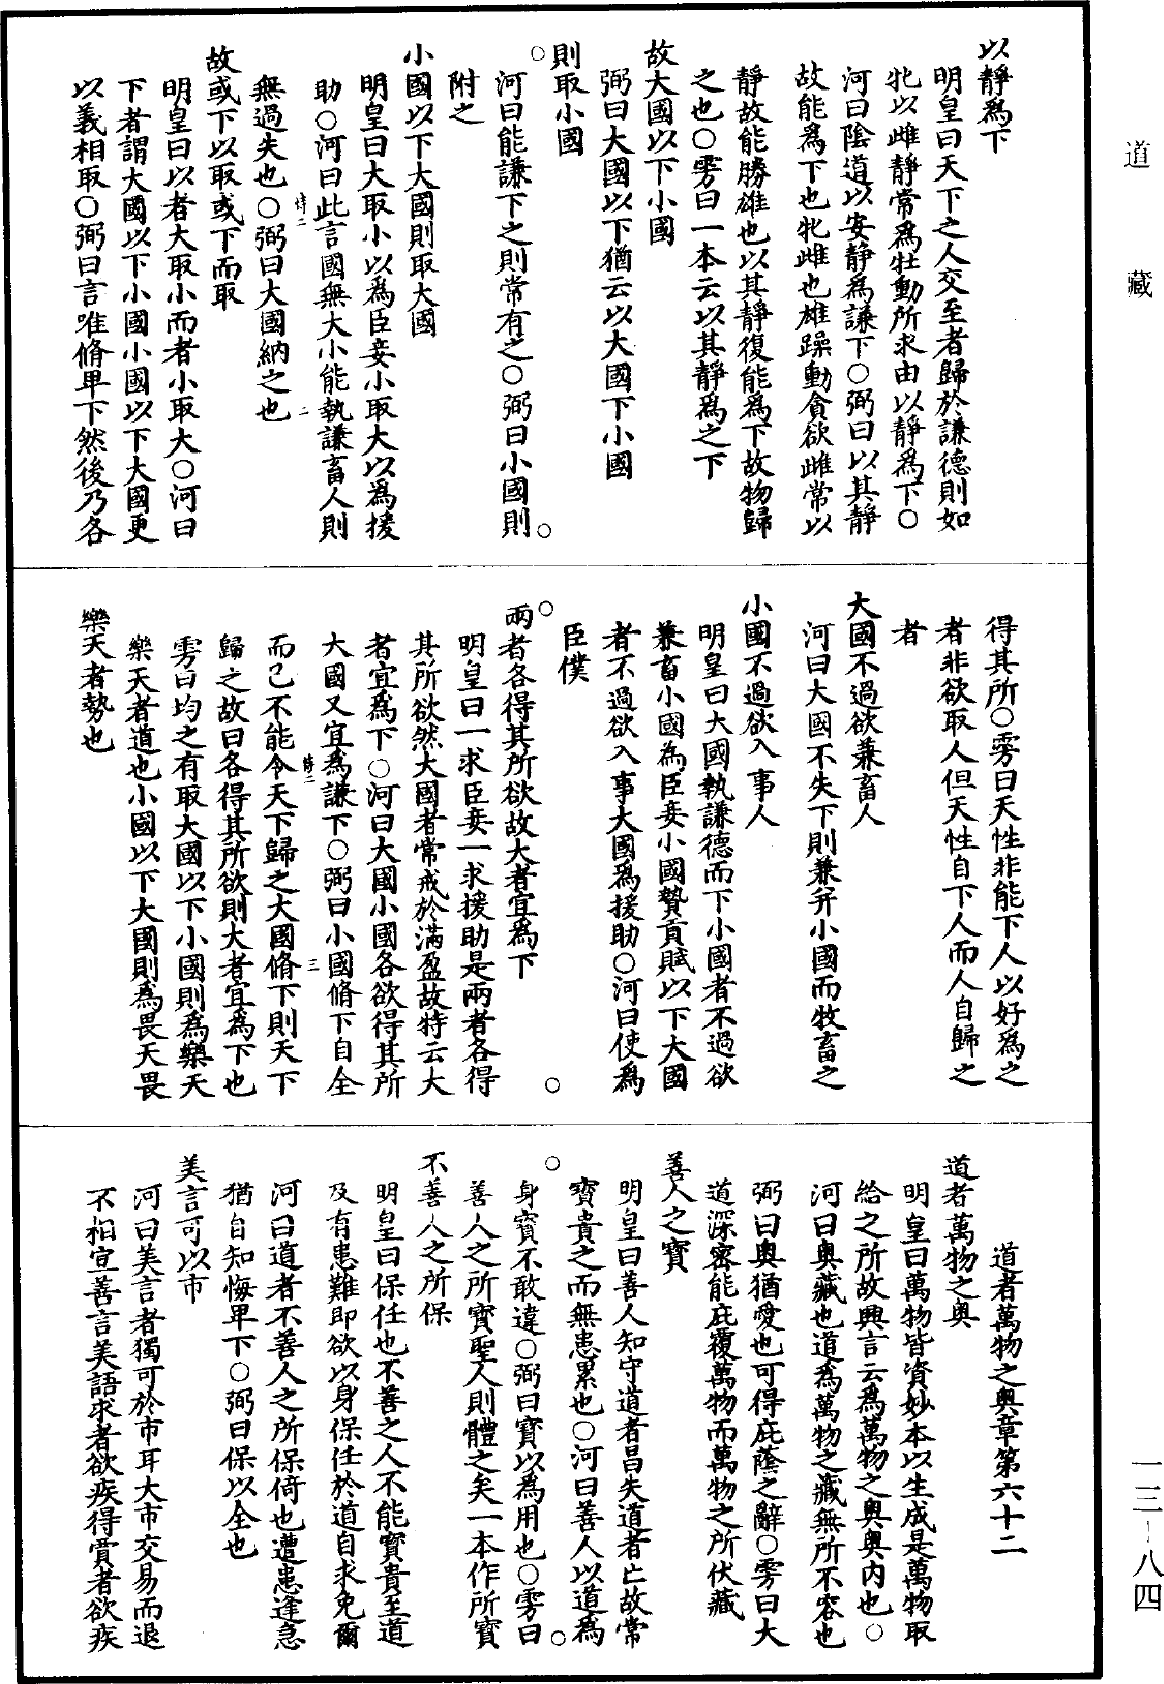 以靜爲下
明皇曰天下之人交至者歸於謙德則如
牝以雌靜常爲牡動所求由以靜爲下○
河曰陰道以安靜爲謙下○弼曰以其靜
故能爲下也牝雌也雄躁動貪欲雌常以
靜故能勝雄也以其靜復能爲下故物歸
之也○雱曰一本云以其靜爲之下
故大國以下小國
弼曰大國以下猶云以大國下小國
則取小國
○河曰能謙下之則常有之○弼曰小國則○
附之
小國以下大國則取大國
明皇曰大取小以爲臣妾小取大以爲援
助○河曰此言國無大小能執謙畜人則
無過失也○弼曰大國納之也
故或下以取或下而取
明皇曰以者大取小而者小取大○河曰
下者謂大國以下小國小國以下大國更
以義相取○弼曰言唯脩卑下然後乃各
得其所○雱曰天性非能下人以好爲之
者非欲取人但天性自下人而人自歸之
者
大國不過欲兼畜人
河曰大國不失下則兼并小國而牧畜之
小國不過欲入事人
明皇曰大國執謙德而下小國者不過欲
兼畜小國為臣妾小國贄貢賦以下大國
者不過欲入事大國爲援助○河曰使爲
臣僕
○兩者各得其所欲故大者宜爲下○
明皇曰一求臣妾一求援助是兩者各得
其所欲然大國者常戒於滿盈故特云大
者宜爲下○河曰大國小國各欲得其所
大國又宜爲謙下○弼曰小國脩下自全
而已不能令天下歸之大國脩下則天下
歸之故曰各得其所欲則大者宜爲下也
雱曰均之有取大國以下小國則爲樂天
樂天者道也小國以下大國則爲畏天畏
樂天者勢也
道者萬物之奧章第六十二
道者萬物之奥
明皇曰萬物皆資妙本以生成是萬物取
給之所故興言云爲萬物之奧奧内也○
河曰奥藏也道爲萬物之藏無所不容也
弼曰奥猶愛也可得庇蔭之辭○雱曰大
道深密能庇覆萬物而萬物之所伏藏
善人之寶
明皇曰善人知守道者昌失道者亡故常
寶貴之而無患累也○河曰善人以道爲
○身寶不敢違○弼曰寶以爲用也○雱曰○
善人之所寶聖人則體之矣一本作所寶
不善人之所保
明皇曰保任也不善之人不能寶貴至道
及有患難即欲以身保任於道自求免爾
河曰道者不善人之所保倚也遭患逢急
猶自知悔卑下○弼曰保以全也
美言可以市
河曰美言者獨可於市耳大市交易而退
不相宣善言美語求者欲疾得賣者欲疾
道藏
一三－八四